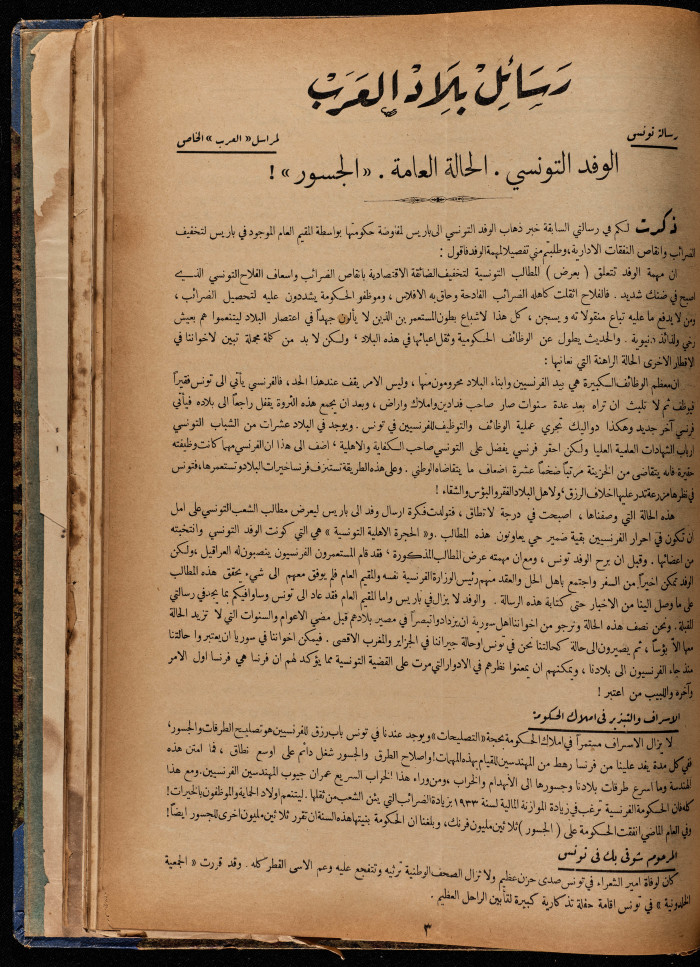 رسائل بلاد العرب
رسالة تونس
لمراسل «العرب» الخاص
الوفد التونسي . الحالة العامة . «الجسور» !
ذكرت لكم في رسالتي السابقة خبر ذهاب الوفد التونسي الى باريس لمفاوضة حكومتها بواسطة المقيم العام الموجود في باريس لتخفيف
الضرائب وانقاص النفقات الادارية، وطلبتم مني تفصيلا لمهمة الوفد فاقول :
ان مهمة الوفد تتعلق ( بعرض ) المطالب التونسية لتخفيف الضائقة الاقتصادية بانقاص الضرائب واسعاف الفلاح التونسي الذي
اصبح في ضنك شديد . فالفلاح اثقلت كاهله الضرائب الفادحة وحاق به الافلاس ، وموظفو الحكومة يشددون عليه لتحصيل الضرائب ،
ومن لا يدفع ما عليه تباع منقولاته و يسجن ، كل هذا لاشباع بطون المستعمرين الذين لا يألون جهداً في اعتصار البلاد ليتنعموا هم بعيش
رخي ولذائذ دنيوية . والحديث يطول عن الوظائف الحكومية وثقل اعبائها في هذه البلاد ، ولكن لا بد من كلمة مجملة تبين لاخواننا في
الاقطار الاخرى الحالة الراهنة التي نعانيها :
ان معظم الوظائف الكبيرة هي بيد الفرنسيين وابناء البلاد محرومون منها ، وليس الامر يقف عند هذا الحد، فالفرنسي يأتي الى تونس فقيراً
فيوظف ثم لا تلبث ان تراه بعد عدة سنوات صار صاحب فدادين واملاك واراض ، وبعد ان يجمع هذه الثروة يقفل راجعاً الى بلاده فيأتي
فرنسي آخر جديد وهكذا دواليك تجري عملية الوظائف والتوظيف للفرنسيين في تونس . ويوجد في البلاد عشرات من الشباب التونسي
ارباب الشهادات العلمية العليا ولكن احقر فرنسي يفضل على التونسي صاحب الكفاية والاهلية ، اضف الى هذا ان الفرنسي مهما كانت وظيفته
حقيرة فانه يتقاضى من الخزينة مرتباً ضخماً عشرة اضعاف ما يتقاضاه الوطني . وعلى هذه الطريقة تستنزف فرنسا خيرات البلاد وتستعمرها، فتونس
في نظرها مزرعة تدر عليها اخلاف الرزق، ولاهل البلاد الفقر والبؤس والشقاء !
هذه الحالة التي وصفناها ، اصبحت في درجة لا تطاق ، فتولدت فكرة ارسال وفد الى باريس ليعرض مطالب الشعب التونسي على امل
ان تكون في احرار الفرنسيين بقية ضمير حي يعاونون هذه المطالب . و« الحجرة الاهلية التونسية » هي التي كونت الوفد التونسي وانتخبته
من اعضائها . وقبل ان برح الوفد تونس ، ومع ان مهمته عرض المطالب المذكورة ، فقد قام المستعمرون الفرنسيون ينصبون له العراقيل ، ولكن
الوفد تمكن اخيراً من السفر واجتمع باهل الحل والعقد منهم رئيس الوزارة الفرنسية نفسه والمقيم العام فلم يوفق معهم الى شيء يحقق هذه المطالب
على ما وصل الينا من الاخبار حتى كتابة هذه الرسالة . والوفد لا يزال في باريس واما المقيم العام فقد عاد الى تونس وساوافيكم بما يجد في رسالتي
المقبلة . ونحن نصف هذه الحالة ونرجو من اخواننا اهل سورية ان يزدادوا تبصراً في مصير بلادهم قبل مضي الاعوام والسنوات التي لا تزيد الحالة
معها الا بؤساً ، ثم يصيرون الى حالة كحالتنا نحن في تونس وحالة جيراننا في الجزائر والمغرب الاقصى . فيمكن اخواننا في سوريا ان يعتبروا حالتنا
منذ جاء الفرنسيون الى بلادنا ، ويمكنهم ان يمعنوا نظرهم في الادوار التي مرت على القضية التونسية مما يؤكد لهم ان فرنسا هي فرنسا اول الامر
وآخره واللبيب من اعتبر !
الاسراف والتبذير في املاك الحكومة
لا يزال الاسراف مستمراً في املاك الحكومة بحجة «التصليحات» ويوجد عندنا في تونس باب رزق للفرنسيين هو تصليح الطرقات والجسور ؛
ففي كل مدة يفد علينا من فرنسا رهط من المهندسين للقيام بهذه المهمات ! واصلاح الطرق والجسور شغل دائم على اوسع نطاق ، فما امتن هذه
الهندسة وما اسرع طرقات بلادنا وجسورها الى الانهدام والخراب ، ومن وراء هذا الخراب السريع عمران جيوب المهندسين الفرنسيين. ومع هذا
كله فان الحكومة الفرنسية ترغب في زيادة الموازنة المالية لسنة ١٩٣٣ بزيادة الضرائب التي يئن الشعب من ثقلها . ليتنعم اولاد الحاية والموظفون بالخيرات !
وفي العام الماضي انفقت الحكومة على ( الجسور ) ثلاثين مليون فرنك، وبلغنا ان الحكومة بنيتها هذه السنة ان تقرر ثلاثين مليون اخرى للجسور ايضاً !
المرحوم شوقي بك في تونس
كان لوفاة امير الشعراء في تونس صدى حزن عظيم ولا تزال الصحف الوطنية ترثيه وتتفجع عليه وعم الاسى القطر كله . وقد قررت « الجمعية
الخلدونية » في تونس اقامة حفلة تذكارية كبيرة لتأبين الراحل العظيم .
٣